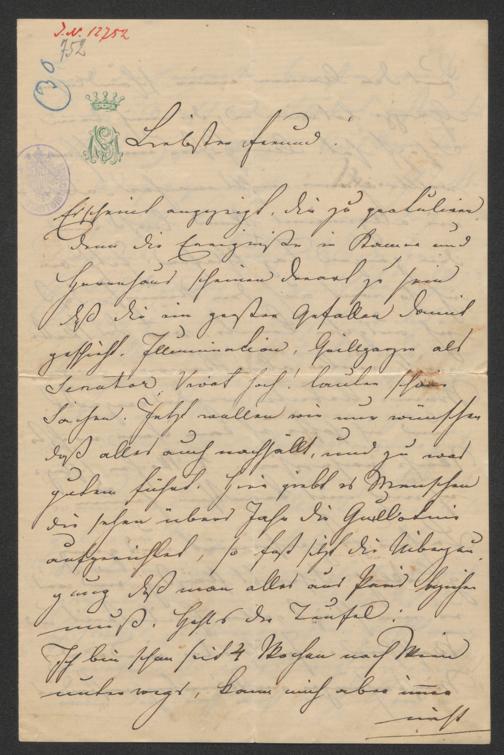 J. N. 12752
752
30
Liebster Freund!
Es scheint angezeigt, dir zu gratulieren
denn die Ereignisse in Kammer und
Herrenhaus scheinen derart zu sein
daß dir ein großer Gefallen damit
geschieht. Illumination, Grillparzer als
Senator, Vivat hoch! lauter schöne
Sachen. Jetzt wollen wir nur wünschen
daß alles auch nachhält, und zu was
gutem führt. Hier giebt es Menschen
die sehen übers Jahr die Guillotine
aufgerichtet, so fest sitzt die Überzeu-
gung daß man alles aus Paris beziehen
muß. Hohls der Teufel!
Ich bin schon seit 4 Wochen nach Wien
unterwegs, kann mich aber immer
nicht